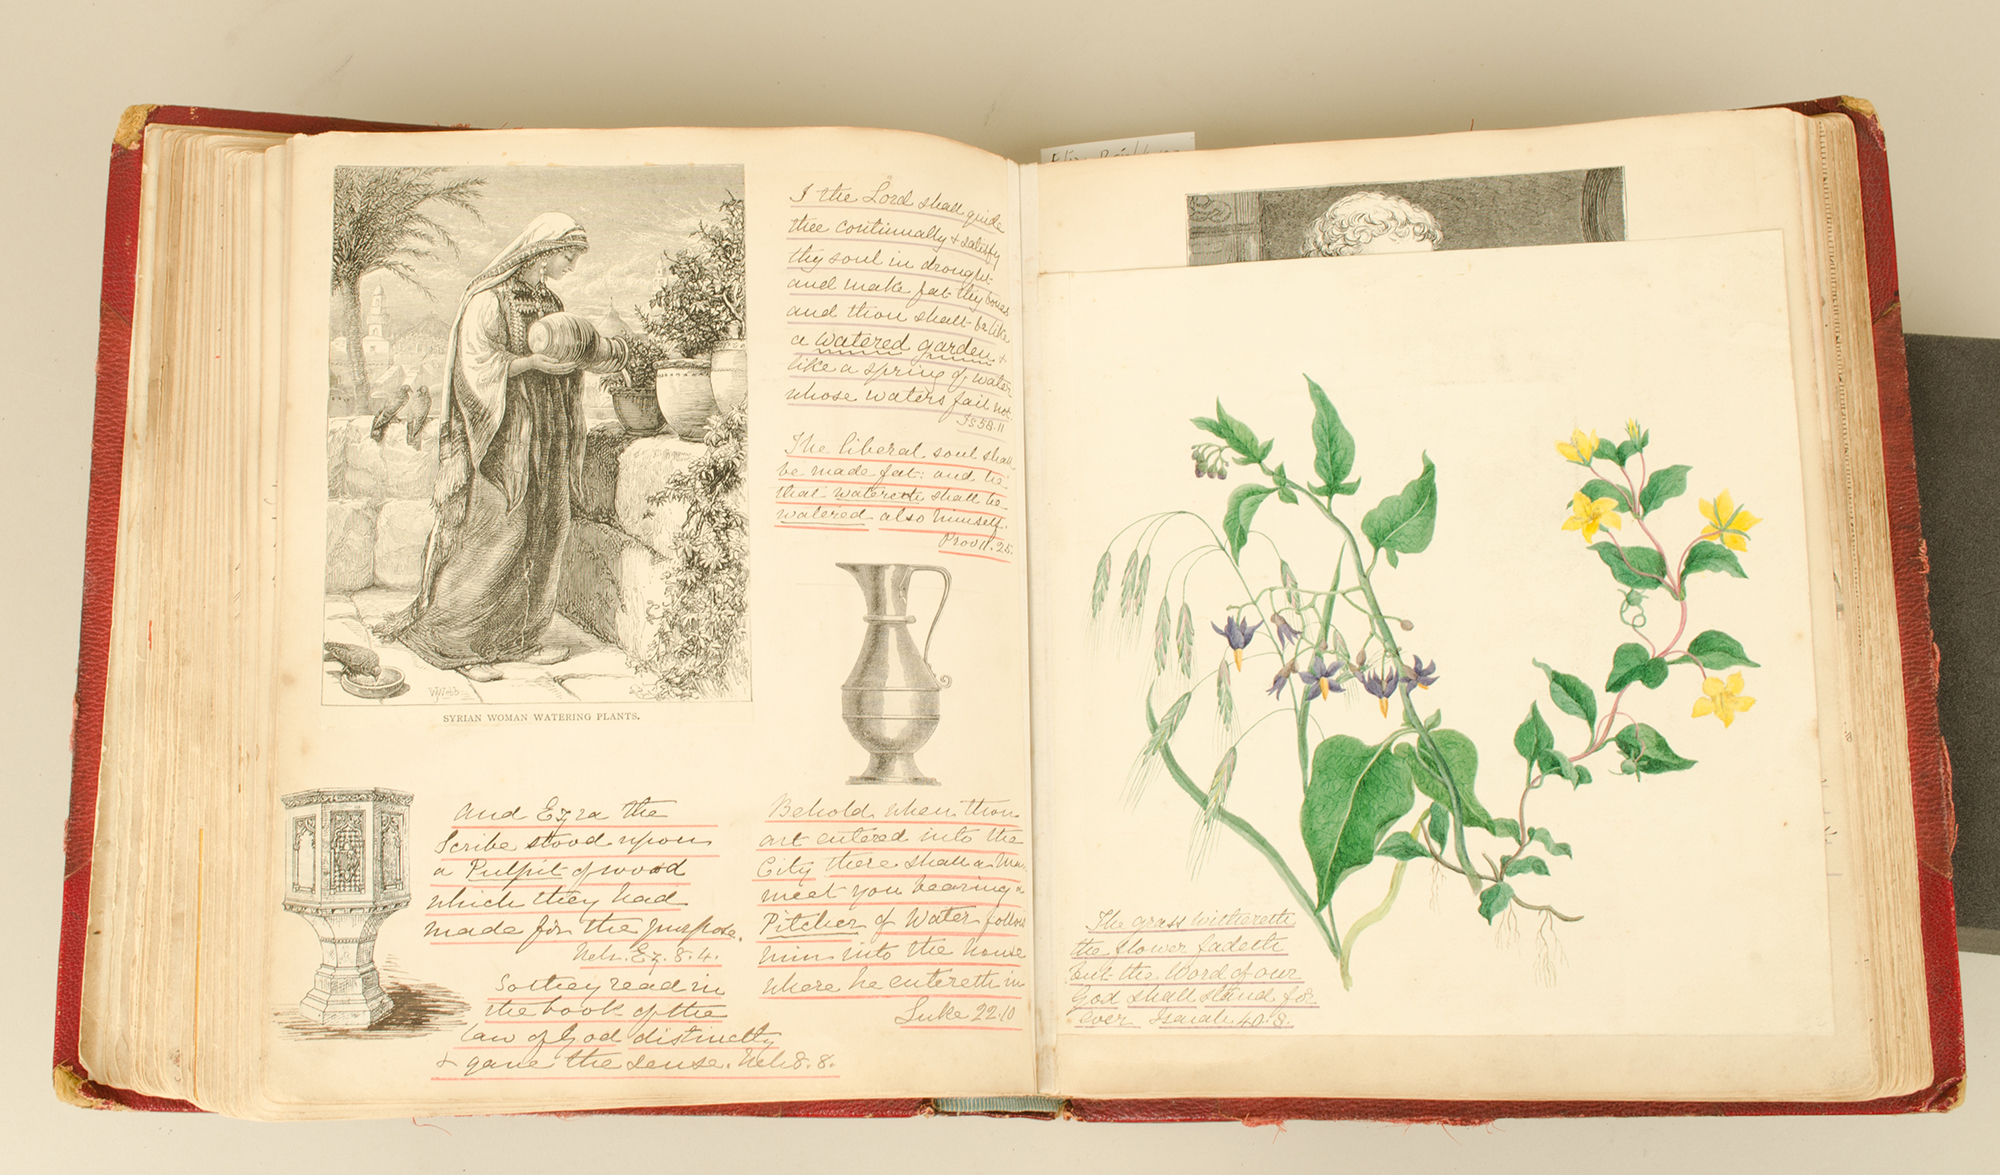 I the Lord shall guide
thee continually & satisfy
thy soul in drought
and make fat thy bones
and thou shalt be like
a watered garden &
like a spring of water
whose waters fail not.
Is 58.11
The liberal soul shall
be made fat: and he
that watereth shall be
watered also himself.
Prov 11.25.
SYRIAN WOMAN WATERING PLANTS.
and Ezra the
Scribe stood upon
a Pulpit of wood
which they had
made for the purpose.
Neh. Ez. 8.4.
So they read in
the book of the
law of God distinctly
& gave the sense. Neh 8.8.
Behold when thou
art entered into the
City there shall a Man
meet you bearing a
Pitcher of Water follow
him into the house
where he entereth in
Luke 22.10
The grass withereth
the flower fadeth
but the Word of our
God shall stand for
ever Isaiah 40.8.